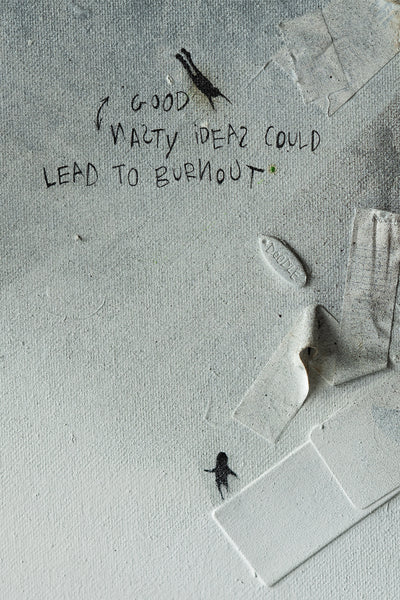 GOOD
NASTY IDEAS COULD
LEAD TO BURNOUT
DOODLE